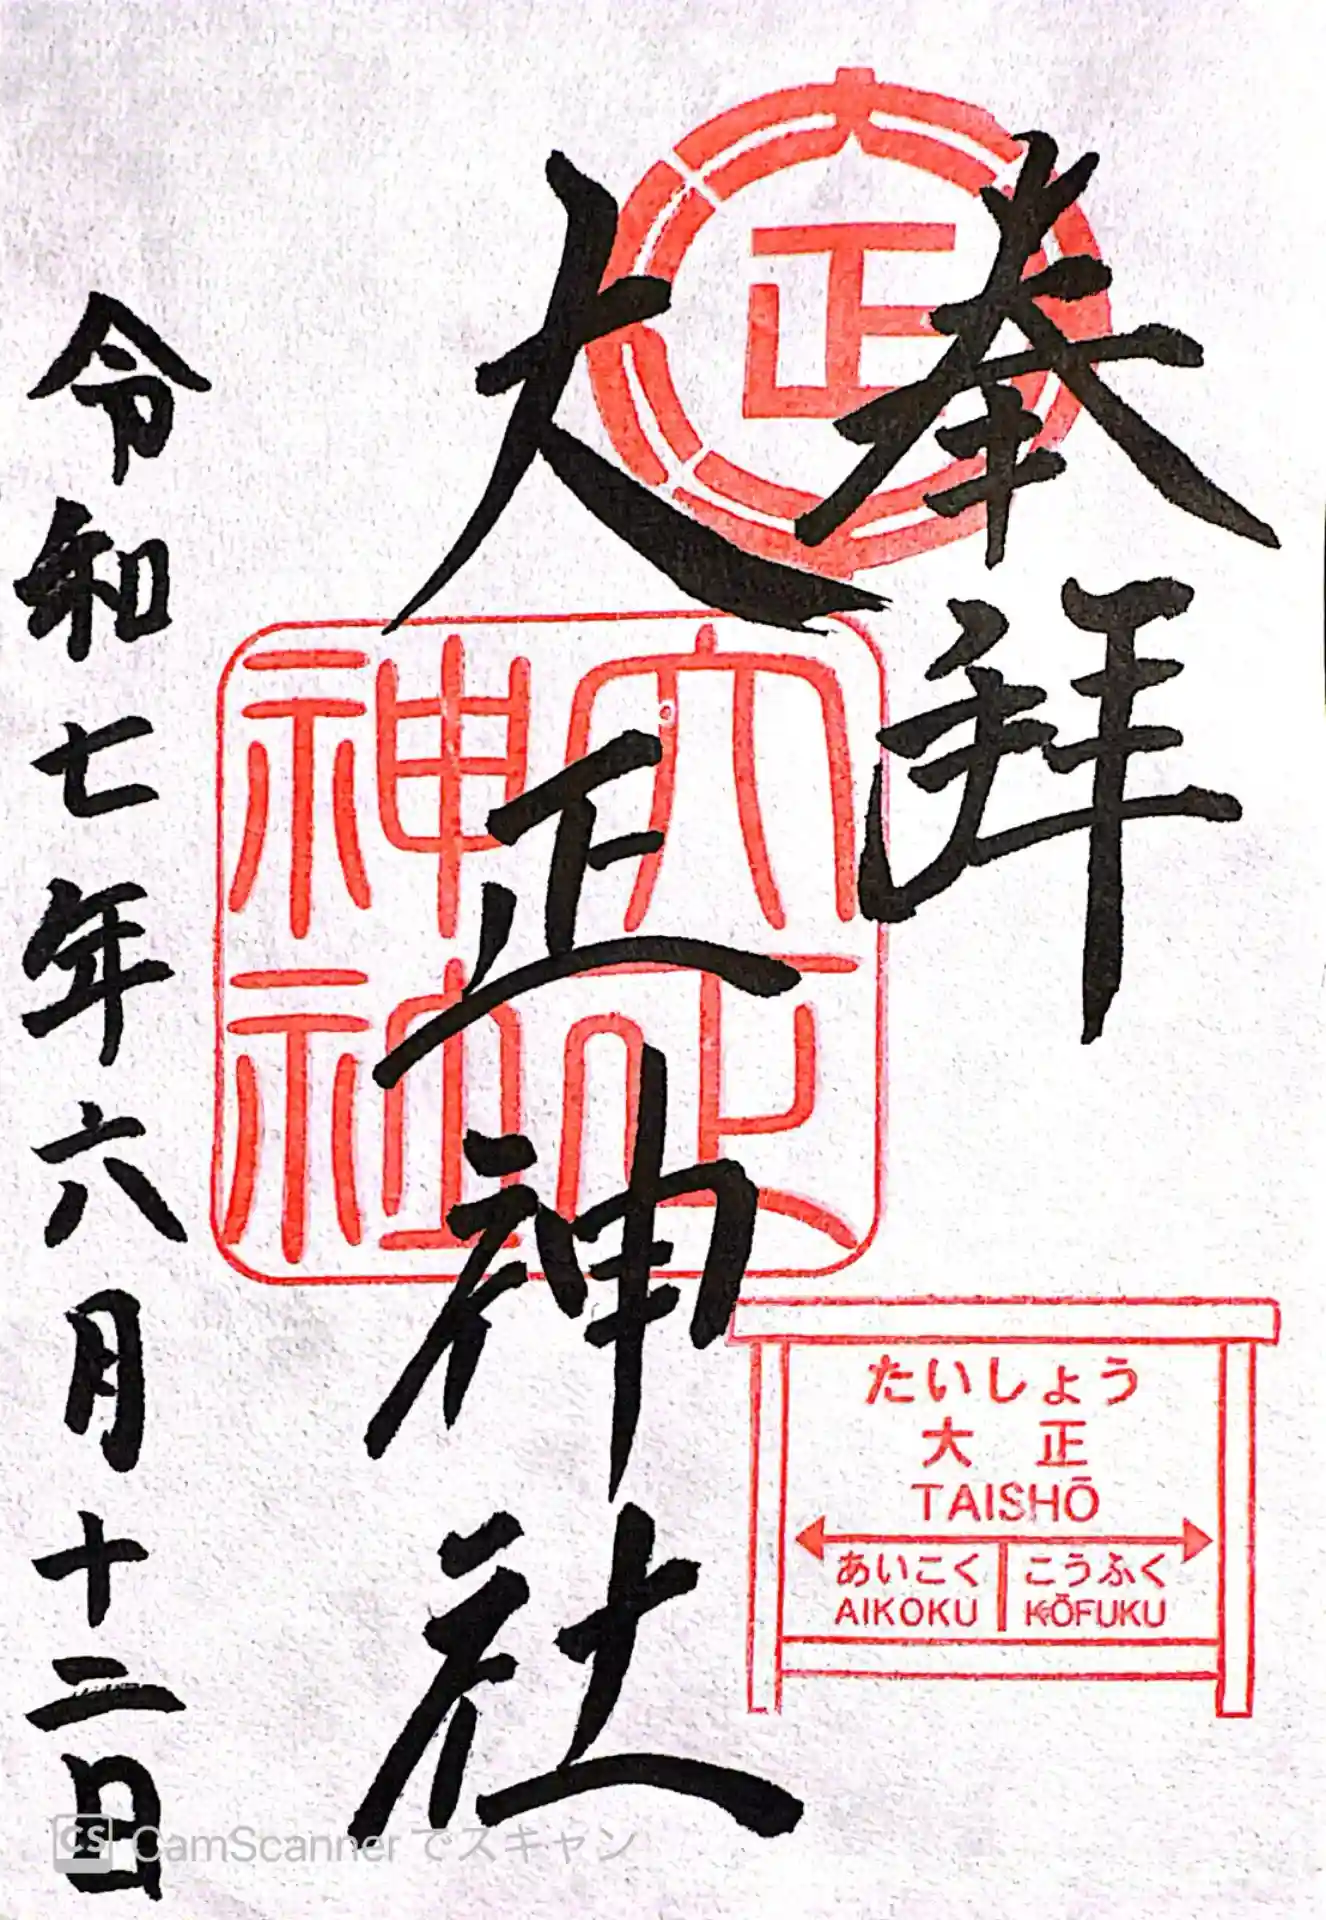 奉拝
正
大正神社
大正神社
令和七年六月十二日
たいしょう
大正
TAISHŌ
あいこく こうふく
AIKOKU KŌFUKU
CS CamScannerでスキャン